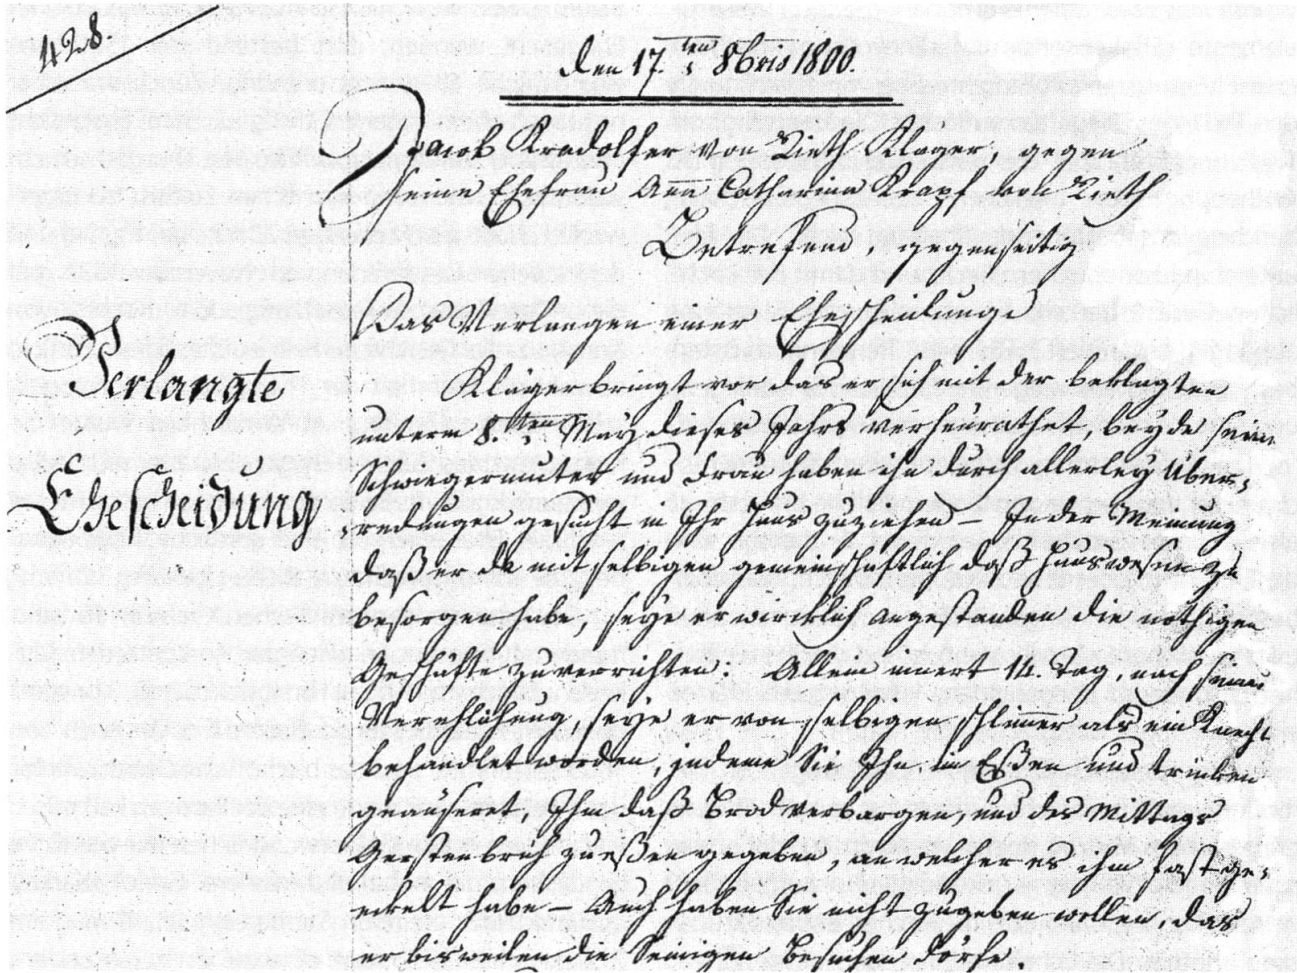 428.
Den 17.ten 8bris 1800.
Jacob Kradolfer von Rieth Klager, gegen
seine Ehefrau Aña Catharina Krapf von Rieth
Betrefend gegenseitig
Das Verlangen einer Ehescheidung
Verlangte
Ehescheidung
Kläger bringt vor das er sich mit der beklagten
unterm 8.ten May dieses Jahrs verheurathet, beyde seine
Schwiegermuter und Frau haben ihn durch allerley Über-
redungen gesucht in Ihr Haus zuziehen – In der Meinung
daß er da mit selbigen gemeinschaftlich daß Hauswesen zu
besorgen habe, seye er wircklich angestanden die nöthigen
Geschäfte zuverrichten. Allein inert 14. Tag, nach seiner
Verehlichung, seye er von selbigen schlimer als ein Knecht
behandlet worden, jndeme Sie Ihn im Eßen und trinken
geäuseret, Ihm daß Brod verbargen, und des Mittags
Gerstenbrüh zu eßen gegeben, an welcher es ihm fast ge-
eckelt habe – Auch haben Sie nicht zugeben wollen, das
er bisweilen die Seinigen Besuchen dörfe.